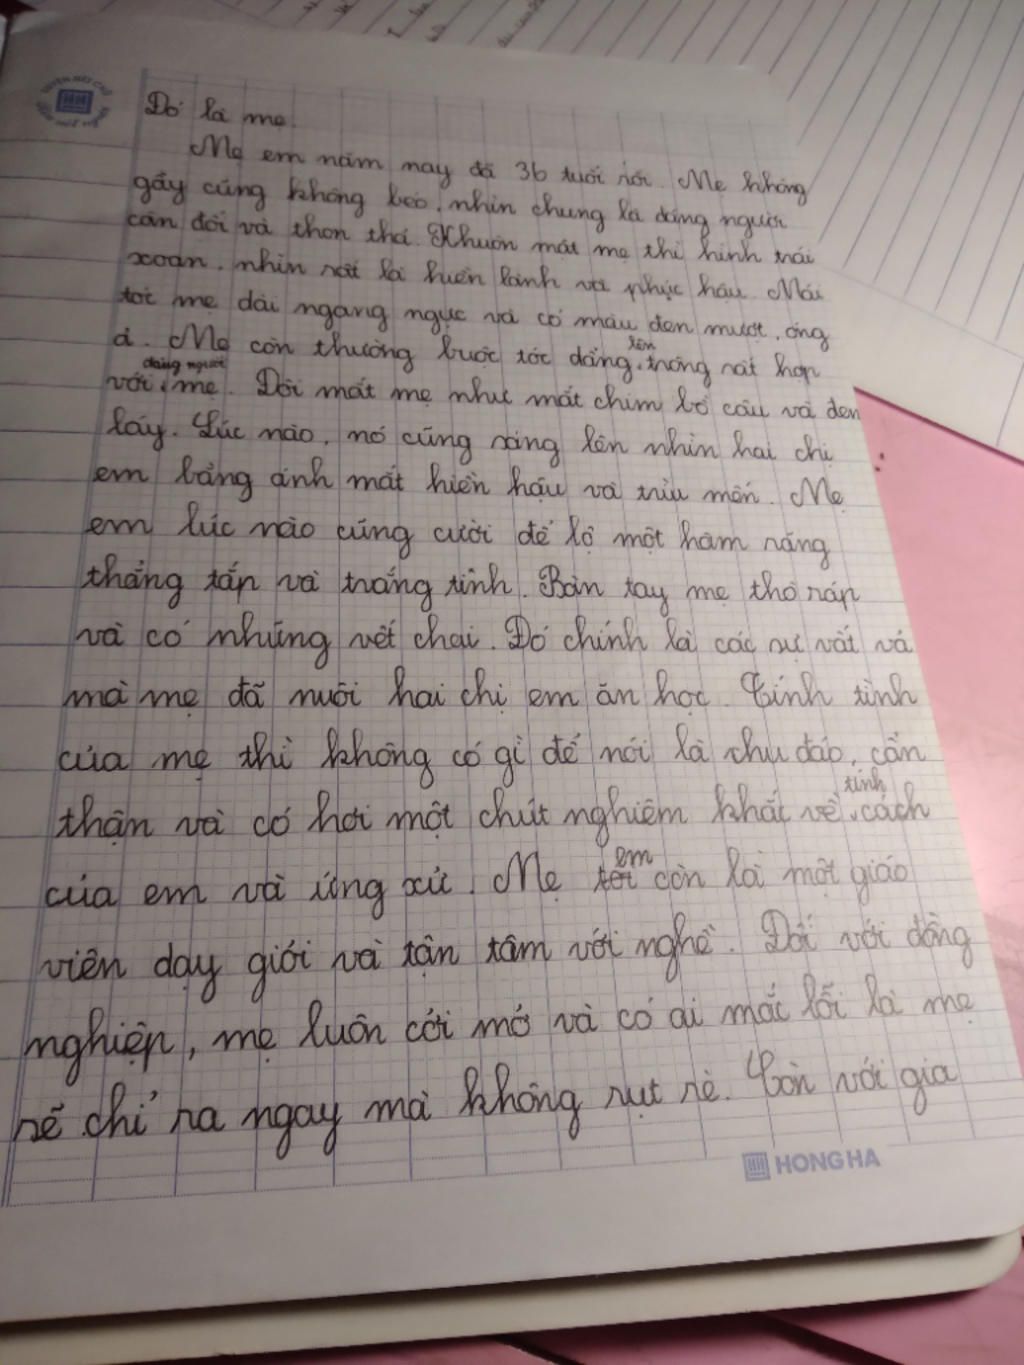 Đó là mẹ.
Mẹ em năm nay đã 36 tuổi rồi. Mẹ không
gầy cũng không béo, nhìn chung là dáng người
cân đối và thon thả. Khuôn mặt mẹ thì hình trái
xoan, nhìn rất là hiền lành và phúc hậu. Mái
tóc mẹ dài ngang ngực và có màu đen mượt, óng
ả. Mẹ còn thường buộc tóc đằng lên, trông rất hợp
với dáng người mẹ. Đôi mắt mẹ như mắt chim bồ câu và đen
láy. Lúc nào, nó cũng sáng lên nhìn hai chị
em bằng ánh mắt hiền hậu và trìu mến. Mẹ
em lúc nào cũng cười để lộ một hàm răng
thẳng tắp và trắng tinh. Bàn tay mẹ thô ráp
và có những vết chai. Đó chính là các sự vất vả
mà mẹ đã nuôi hai chị em ăn học. Tính tình
của mẹ thì không có gì để nói là chu đáo, cẩn
thận và có hơi một chút nghiêm khắc về tính cách
của em và ứng xử. Mẹ em còn là một giáo
viên dạy giỏi và tận tâm với nghề. Đối với đồng
nghiệp, mẹ luôn cởi mở và có ai mắc lỗi là mẹ
sẽ chỉ ra ngay mà không rụt rè. Còn với gia
HONG HA